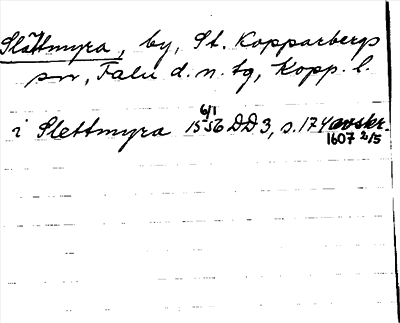 Slättmyra, by, St. Kopparbergs
sn, Falu d. n. tg, Kopp. l.
i Slettmyra 15 6/1 56 DD 3, s. 174 avskr.
1607 2/5